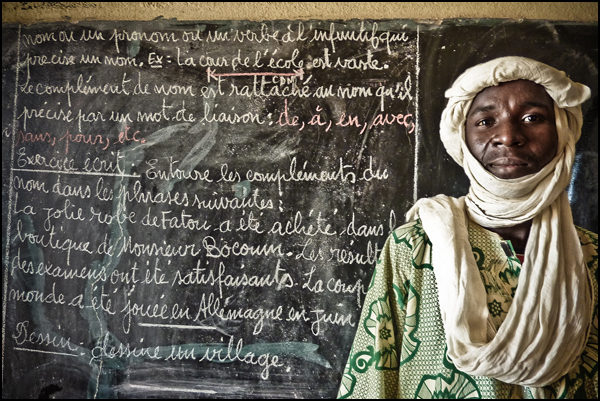 nom ou un pronom ou un verbe à l'infinitif qui
précise un nom. Ex: la cour de l'école est vaste.
CDN
Le complément de nom est rattaché au nom qu'il
précise par un mot de liaison: de, à, en, avec,
sans, pour, etc.
Exercice écrit: Entoure les compléments du
nom dans les phrases suivantes:
La jolie robe de Fatou a été acheté dans l
boutique de Monsieur Bocoum. Les résult
des examens ont été satisfaisants. La coup
monde a été jouée en Allémagne en juin
Dessin: dessine un village.